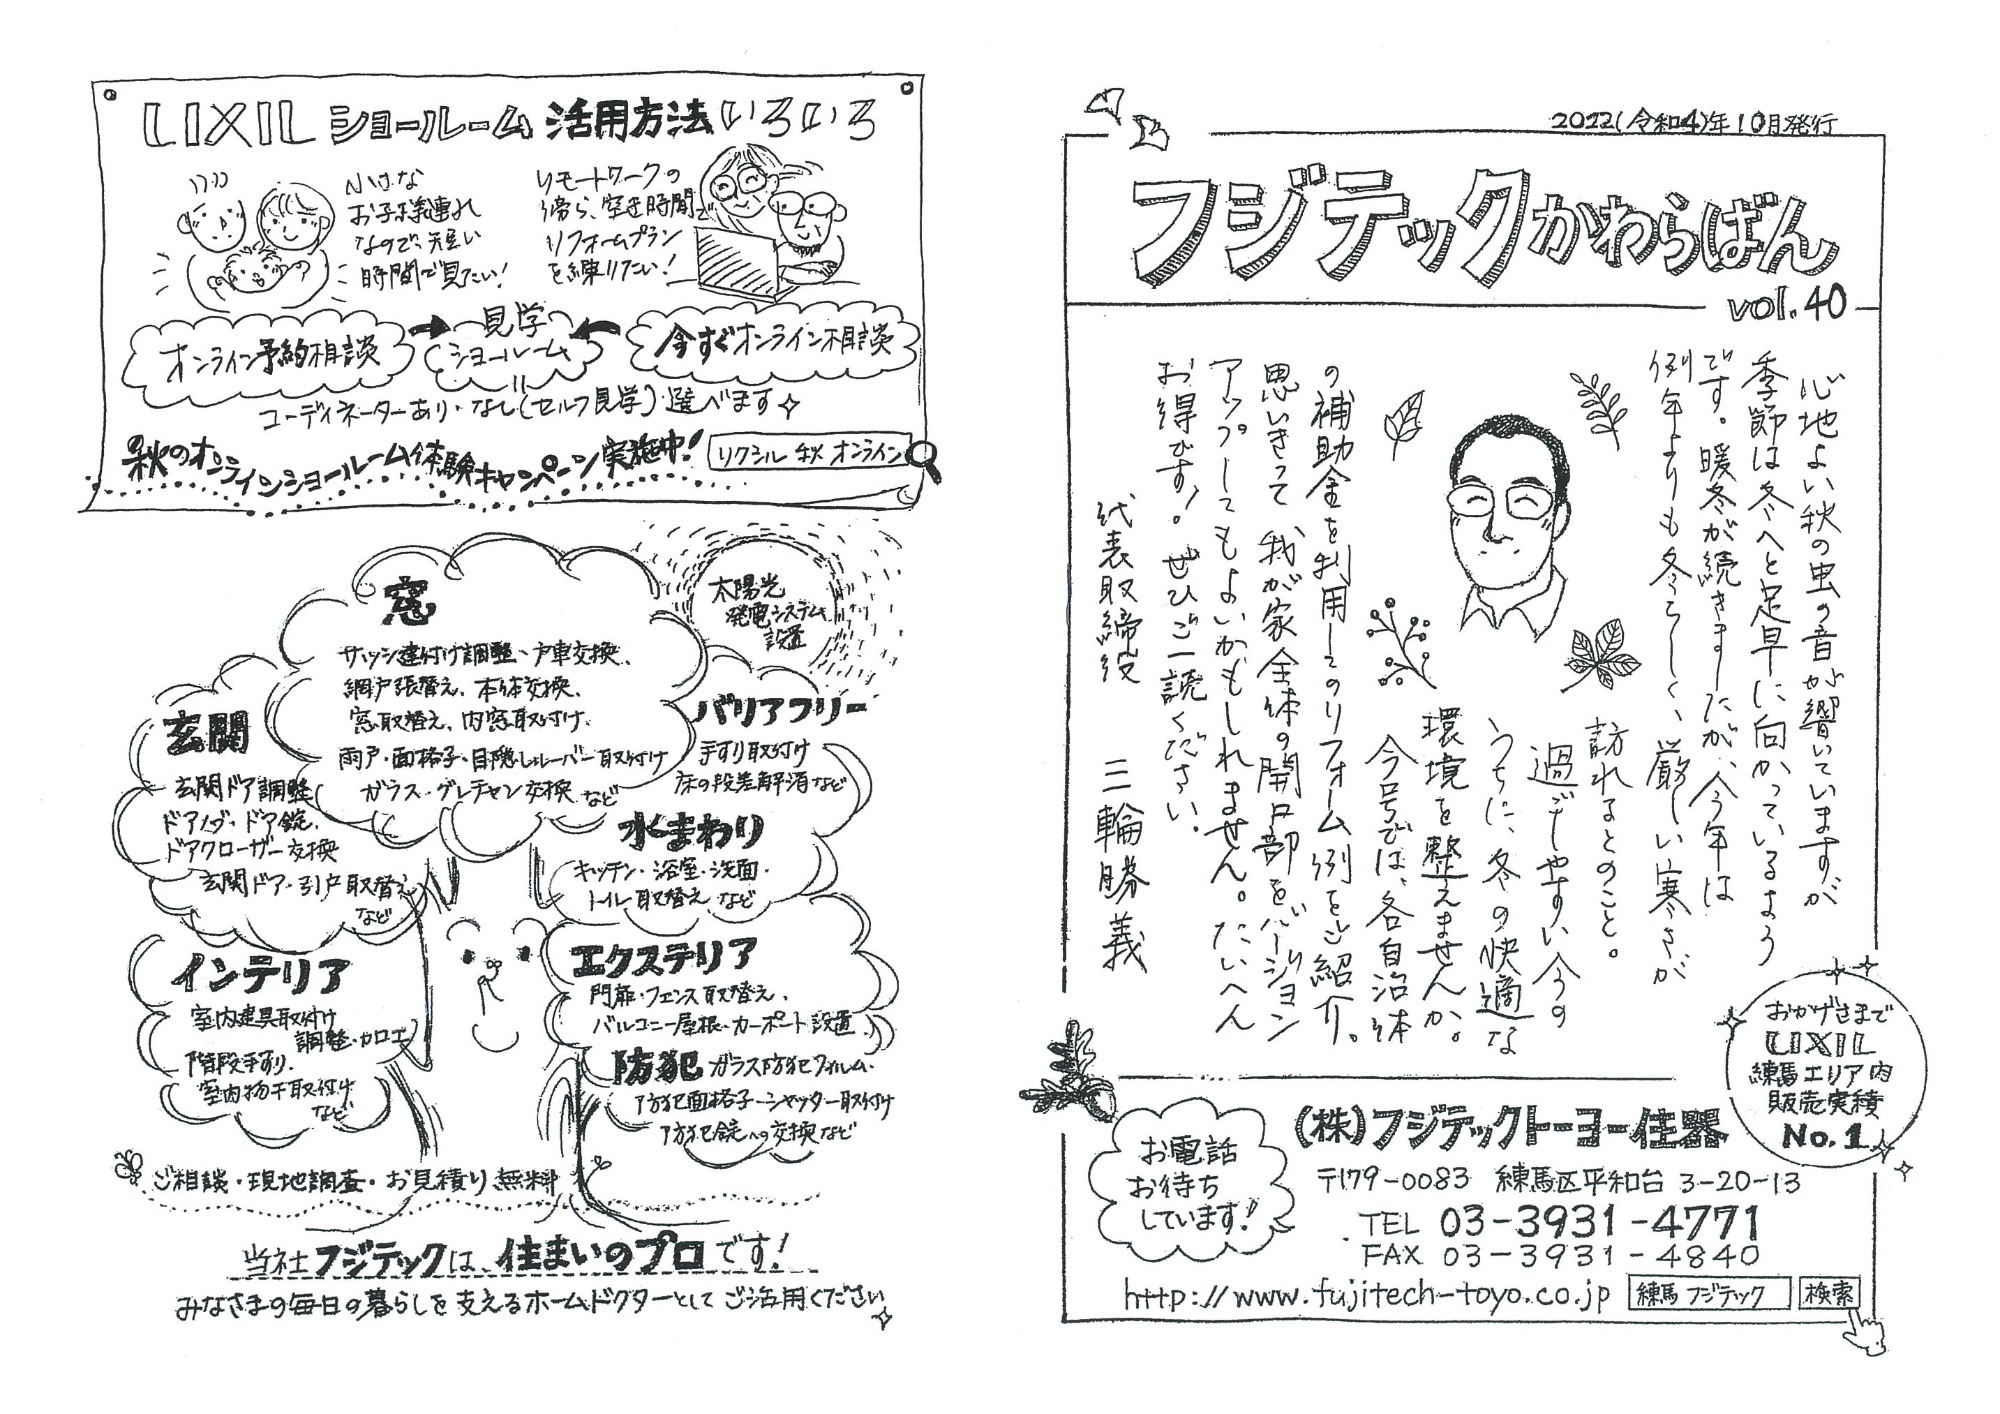 2022(令和4)年10月発行
フジテックかわらばん
vol.40
心地よい秋の虫の音が響いていますが
季節は冬へと足早に向かっているよう
です。暖冬が続きましたが、今年は
例年よりも冬らしく、厳しい寒さが
訪れるとのこと。
過ごしやすい今の
うちに、冬の快適な
環境を整えませんか。
今号では、各自治体
の補助金を利用してのリフォーム例をご紹介。
思いきって我が家全体の開口部をバージョン
アップしてもよいかもしれません。たいへん
お得です!。ぜひご一読ください。
代表取締役 三輪勝義
おかげさまで
LIXIL
練馬エリア内
販売実績
No.1
お電話
お待ち
しています!
(株)フジテックトーヨー住器
〒179-0083 練馬区平和台3-20-13
TEL 03-3931-4771
FAX 03-3931-4840
http://www.fujitech-toyo.co.jp 練馬 フジテック 検索
LIXILショールーム活用方法いろいろ
小さな
お子様連れ
なので、短い
時間で見たい!
リモートワークの
傍ら、空き時間で
リフォームプラン
を練りたい!
オンライン予約相談
見学
ショールーム
今すぐオンライン相談
コーディネーターあり・なし(セルフ見学)選べます
秋のオンラインショールーム体験キャンペーン実施中!
リクシル 秋 オンライン
太陽光
発電システム
設置
窓
サッシ建付け調整、戸車交換、
網戸張替え、本体交換、
窓取替え、内窓取付け、
雨戸・面格子・目隠しルーバー取付け
ガラス・グレチャン交換 など
玄関
玄関ドア調整
ドアノブ・ドア錠、
ドアクローザー交換
玄関ドア・引戸取替え
など
バリアフリー
手すり取付け
床の段差解消など
水まわり
キッチン・浴室・洗面・
トイレ取替え など
インテリア
室内建具取付け
調整・加工
階段手すり、
室内物干取付け
など
エクステリア
門扉・フェンス取替え、
バルコニー屋根・カーポート設置
防犯 ガラス防犯フィルム・
防犯面格子・シャッター取付け
防犯錠への交換など
ご相談・現地調査・お見積り無料
当社フジテックは、住まいのプロです!
みなさまの毎日の暮らしを支えるホームドクターとしてご活用ください